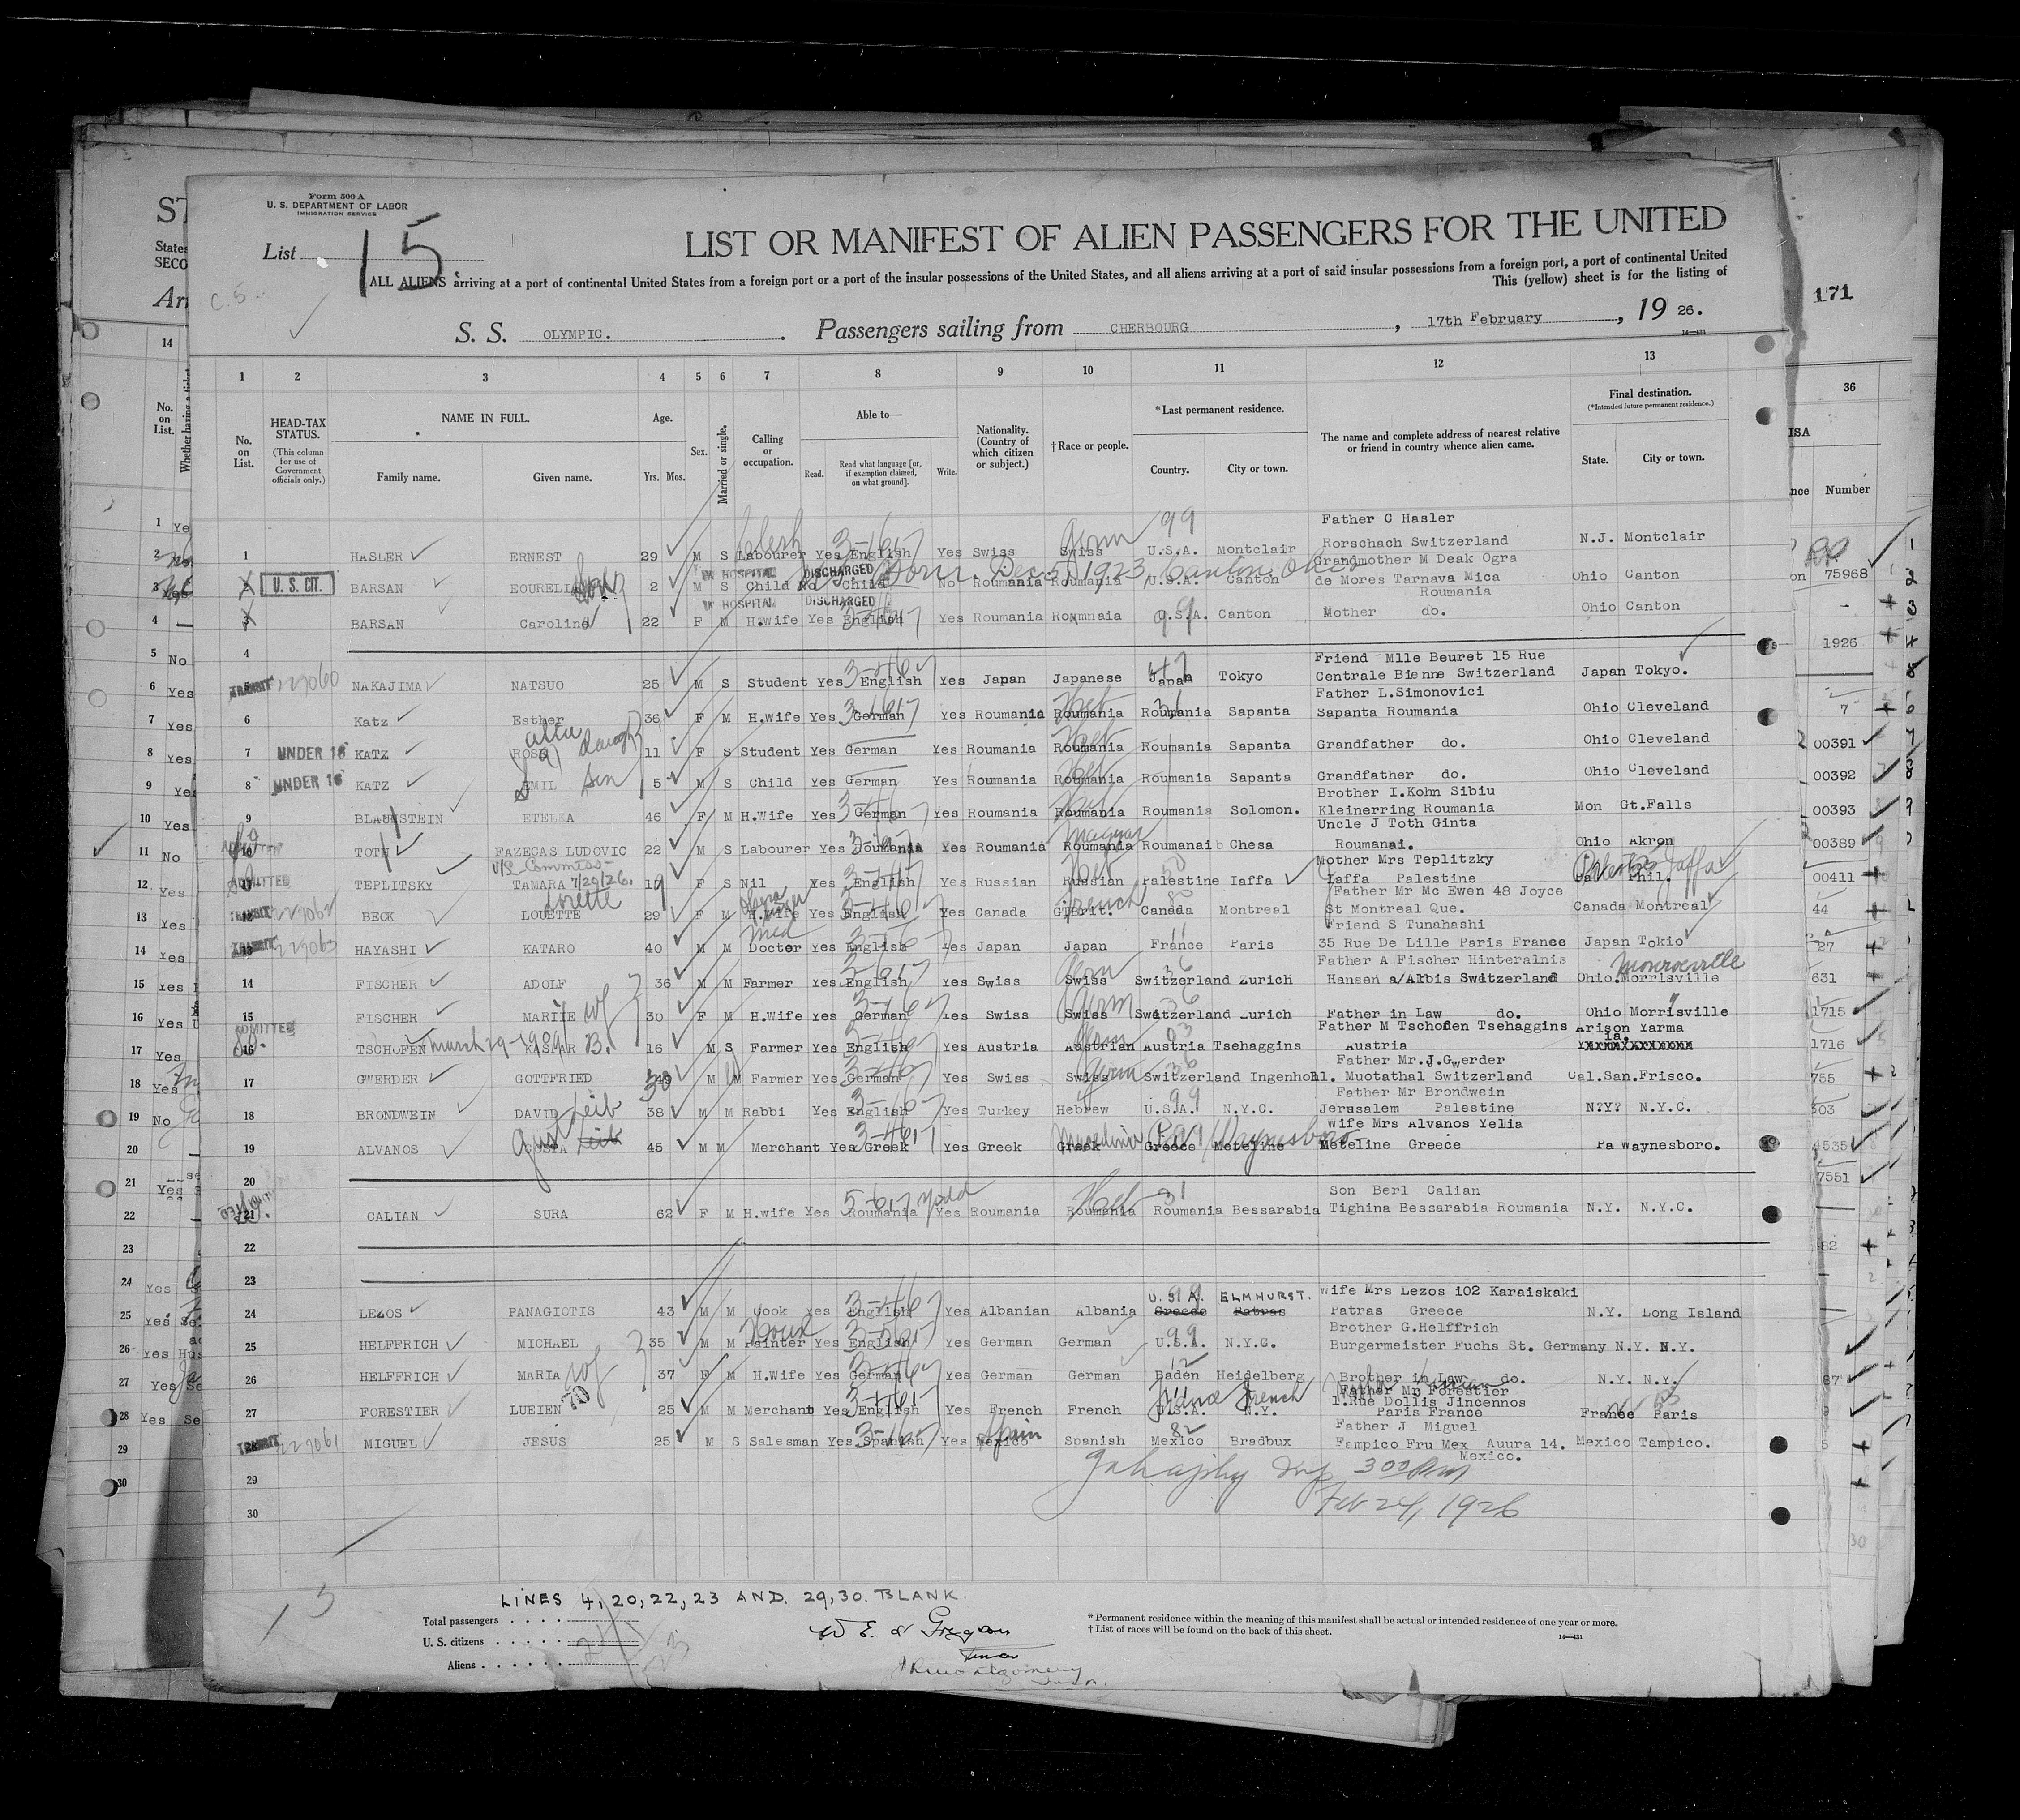 Form 500 A
U. S. DEPARTMENT OF LABOR
IMMIGRATION SERVICE
List 15
LIST OR MANIFEST OF ALIEN PASSENGERS FOR THE UNITED
ALL ALIENS arriving at a port of continental United States from a foreign port or a port of the insular possessions of the United States, and all aliens arriving at a port of said insular possessions from a foreign port, a port of continental United
This (yellow) sheet is for the listing of
171
S. S. OLYMPIC. Passengers sailing from CHERBOURG, 17th February, 19 26.
1 2 3 4 5 6 7 8 9 10 11 12 13
14 36
No. on List. HEAD-TAX STATUS. (This column for use of Government officials only.) NAME IN FULL. Family name. Given name. Age. Yrs. Mos. Sex. Married or single. Calling or occupation. Able to— Read. Read what language [or, if exemption claimed, on what ground]. Write. Nationality. (Country of which citizen or subject.) †Race or people. *Last permanent residence. Country. City or town. The name and complete address of nearest relative or friend in country whence alien came. Final destination. (*Intended future permanent residence.) State. City or town.
Number
Father C Hasler
1 HASLER ERNEST 29 M S Labourer Yes English Yes Swiss Swiss U.S.A. Montclair Rorschach Switzerland N.J. Montclair
Grandmother M Deak Ogra
IN HOSPITAL DISCHARGED Born Dec 5, 1923, Canton Ohio
2 U. S. CIT. BARSAN EOURELI 2 M S Child No Child No Roumania Roumania U.S.A. Canton de Mores Tarnava Mica Ohio Canton 75968
Roumania
IN HOSPITAL DISCHARGED
3 BARSAN Caroline 22 F M H.wife Yes English Yes Roumania Roumnaia U.S.A. Canton Mother do. Ohio Canton
4 1926
Friend Mlle Beuret 15 Rue
TRANSIT 229060 NAKAJIMA NATSUO 25 M S Student Yes English Yes Japan Japanese Japan Tokyo Centrale Bienne Switzerland Japan Tokyo.
Father L.Simonovici
6 Katz Esther 36 F M H.Wife Yes German Yes Roumania Roumania Roumania Sapanta Sapanta Roumania Ohio Cleveland
7 UNDER 16 KATZ ROSA 11 F S Student Yes German Yes Roumania Roumania Roumania Sapanta Grandfather do. Ohio Cleveland 00391
8 UNDER 16 KATZ EMIL son 5 M S Child Yes German Yes Roumania Roumania Roumania Sapanta Grandfather do. Ohio Cleveland 00392
Brother I.Kohn Sibiu
9 BLAUNSTEIN ETELKA 46 F M H.Wife Yes German Yes Roumania Roumania Roumania Solomon. Kleinerring Roumania Mon Gt.Falls 00393
Uncle J Toth Ginta
10 ADMITTED TOTH FAZECAS LUDOVIC 22 M S Labourer Yes Roumania Yes Roumania Roumania Roumanai Chesa Roumanai. Ohio Akron 00389
Mother Mrs Teplitzky
ADMITTED TEPLITSKY TAMARA 7/20/26. F S Nil Yes English Yes Russian Russian Palestine Iaffa Iaffa Palestine Phil. 00411
Father Mr Mc Ewen 48 Joyce
TRANSIT 229062 BECK LOUETTE Lorette 29 F M H.Wife Yes English Yes Canada GTBrit. French Canada Montreal St Montreal Que. Canada Montreal 44
Friend S Tunahashi
TRANSIT 229063 HAYASHI KATARO 40 M M Med Doctor Yes English Yes Japan Japan France Paris 35 Rue De Lille Paris France Japan Tokio 27
Father A Fischer Hinteralnis
14 FISCHER ADOLF 36 M M Farmer Yes English Yes Swiss Swiss Switzerland Zurich Hansen a/Albis Switzerland Ohio. Morrisville Monroeville 631
15 FISCHER MARIIE wf 30 F M H.Wife Yes German Yes Swiss Swiss Switzerland Zurich Father in Law do. Ohio Morrisville 1715
Father M Tschofen Tsehaggins Arison Yarma
16 ADMITTED TSCHOFEN March 29-1909 KASPAR B. 16 M S Farmer Yes English Yes Austria Austrian Austria Tsehaggins Austria 1716
Father Mr.J.Gwerder
17 GWERDER GOTTFRIED M M Farmer Yes German Yes Swiss Swiss Switzerland Ingenhohl. Muotathal Switzerland Cal.San.Frisco. 755
Father Mr Brondwein
18 BRONDWEIN DAVID Leib 38 M M Rabbi Yes English Yes Turkey Hebrew U.S.A. N.Y.C. Jerusalem Palestine N?Y? N.Y.C. 303
Wife Mrs Alvanos Yelia
19 ALVANOS 45 M M Merchant Yes Greek Yes Greek Greek Greece Meteline Meteline Greece Pa Waynesboro. 4535
20 7551
Son Berl Calian
21 CALIAN SURA 62 F M H.wife Yes Roumania Yes Roumania Roumania Roumania Bessarabia Tighina Bessarabia Roumania N.Y. N.Y.C.
22
23
U.S.A. ELMHURST. Wife Mrs Lezos 102 Karaiskaki
24 LEZOS PANAGIOTIS 43 M M Cook Yes English Yes Albanian Albania Greece Patras Patras Greece N.Y. Long Island
Brother G.Helffrich
25 HELFFRICH MICHAEL 35 M M Painter Yes English Yes German German U.S.A. N.Y.C. Burgermeister Fuchs St. Germany N.Y. N.Y.
26 HELFFRICH MARIA wf 37 F M H.Wife Yes German Yes German German Baden Heidelberg Brother in Law do. N.Y. N.Y.
Father Mr Forestier
27 FORESTIER LUEIEN 25 M M Merchant Yes English Yes French French U.S.A. N.Y. 1.Rue Dollis Jincennos France Paris
Paris France
Father J Miguel
TRANSIT 229061 MIGUEL JESUS 25 M S Salesman Yes Spanish Yes Mexico Spain Spanish Mexico Bradbux Fampico Fru Mex Auura 14. Mexico Tampico.
Mexico.
29
300 PM
30 Feb 24, 1926
LINES 4, 20, 22, 23 AND. 29, 30. BLANK.
Total passengers
U. S. citizens
Aliens
* Permanent residence within the meaning of this manifest shall be actual or intended residence of one year or more.
† List of races will be found on the back of this sheet.